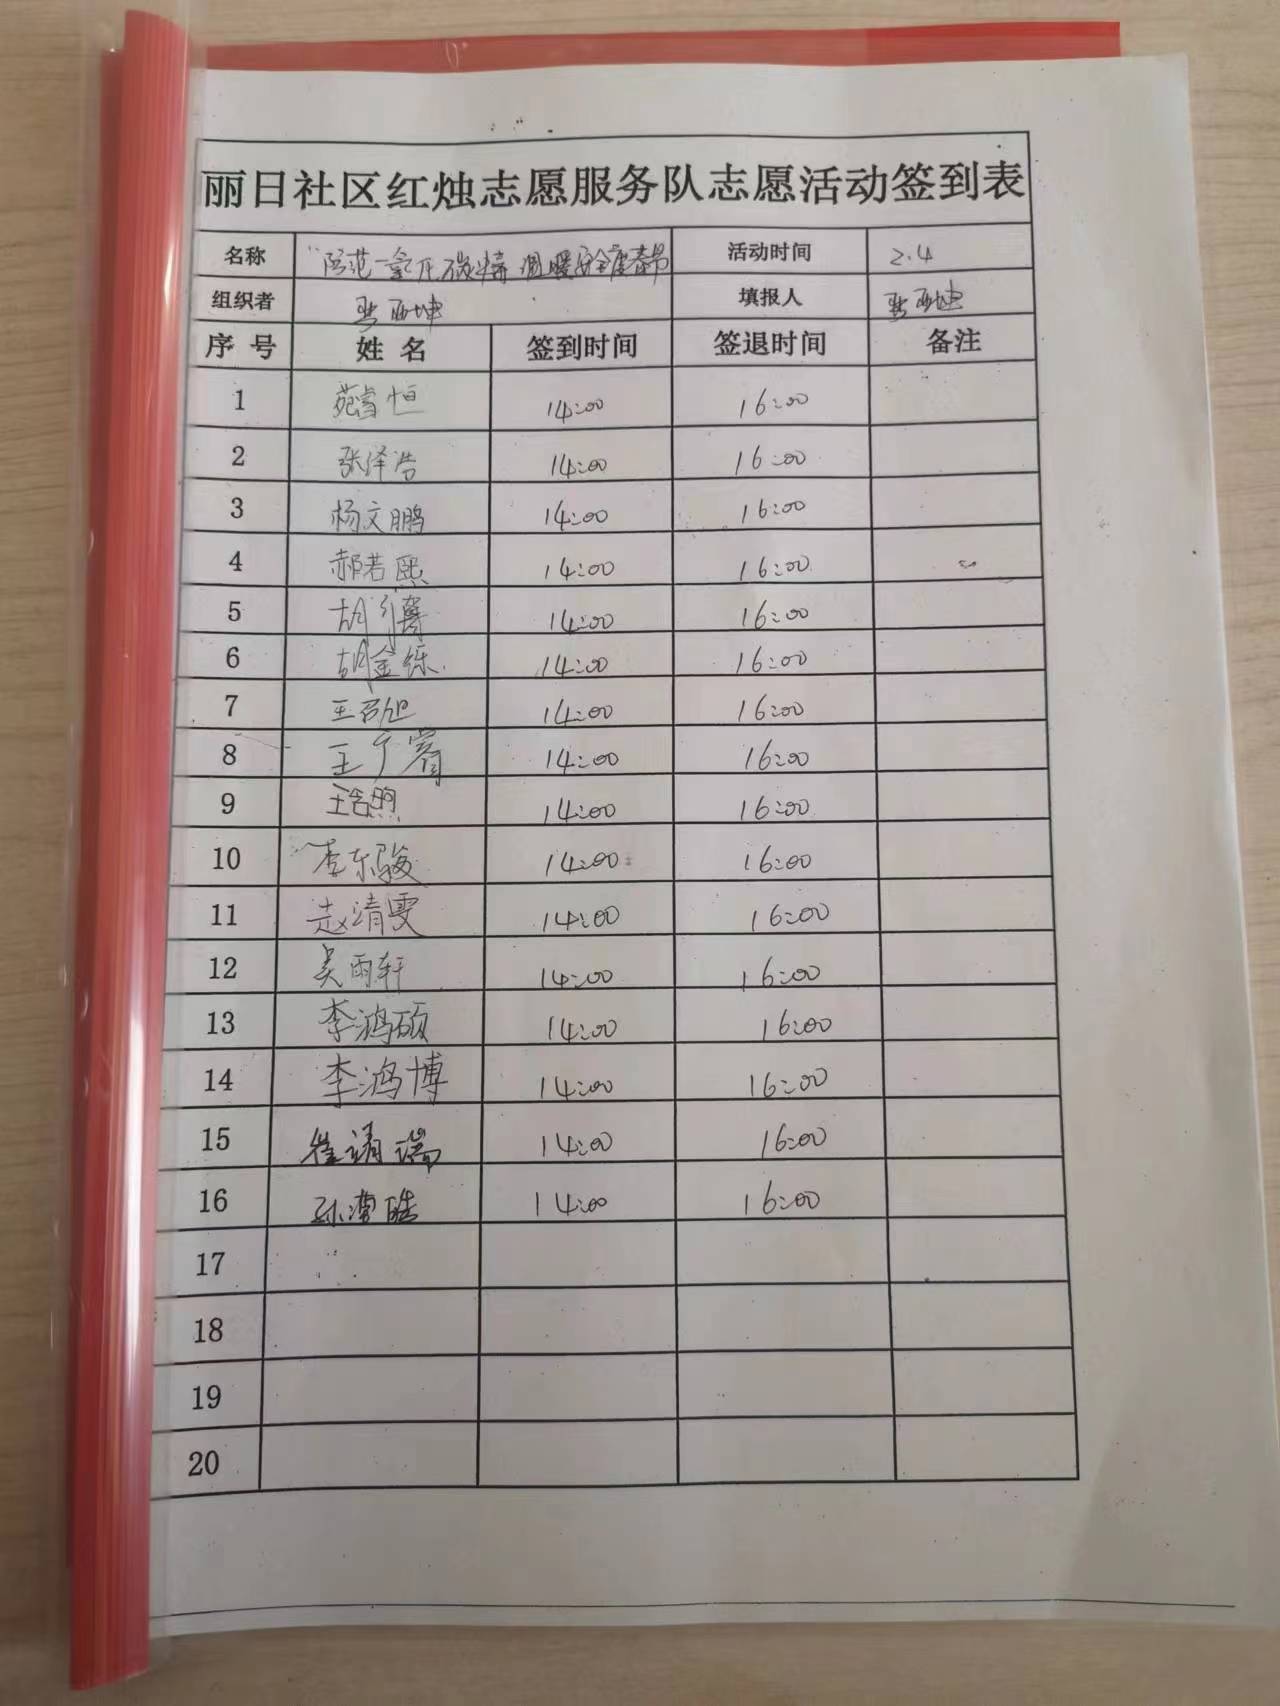 丽日社区红烛志愿服务队志愿活动签到表
名称 "防范一氧化碳 温暖安全度春节 活动时间 2.4
组织者 填报人
序号 姓名 签到时间 签退时间 备注
1 14:00 16:00
2 张泽浩 14:00 16:00
3 杨文鹏 14:00 16:00
4 郝若熙 14:00 16:00
5 胡 14:00 16:00
6 胡金铄 14:00 16:00
7 14:00 16:00
8 王 14:00 16:00
9 14:00 16:00
10 李东骏 14:00 16:00
11 赵清雯 14:00 16:00
12 吴雨轩 14:00 16:00
13 李鸿硕 14:00 16:00
14 李鸿博 14:00 16:00
15 崔靖瑞 14:00 16:00
16 孙 14:00 16:00
17
18
19
20